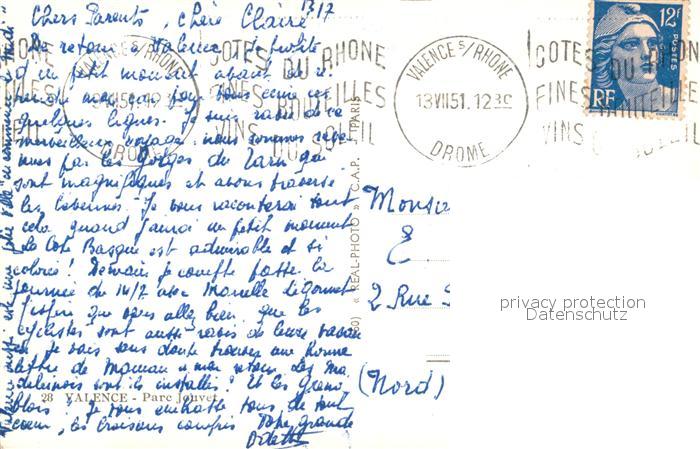 Chers Parents, Chère Claire 13/7
De retour à Valence je profite
d'un petit moment avant de
pour vous écrire ces
quelques lignes. Je suis ravie de ce
merveilleux voyage, nous sommes reve-
nues par les Gorges du Tarn qui
sont magnifiques et avons traversé
les Cévennes. Je vous raconterai tout
cela quand j'aurai un petit moment
La Côte Basque est admirable et si
colorée! Demain je compte passer la
journée du 14/7 avec
J'espère que vous allez bien, que les
cyclistes sont aussi ravis de leurs
Je vais sans doute trouver une bonne
lettre de Maman à mon retour. Les Ma
delinois sont ils installés? Et les Greno
blois? Je vous embrasse tous de tout
cœur, les cousins compris Votre grande
Odette
Valence aussi est une jolie ville où commence le Midi
28 VALENCE - Parc Jouvet
« REAL-PHOTO » C.A.P. PARIS
COTES DU RHONE
FINES BOUTEILLES
VINS DU SOLEIL
VALENCE S/RHONE
13 VII 51. 12 30
DROME
COTES DU RHONE
FINES BOUTEILLES
VINS DU SOLEIL
12F
POSTES
RF
Monsie
E.
2 Rue
(Nord)
privacy protection
Datenschutz